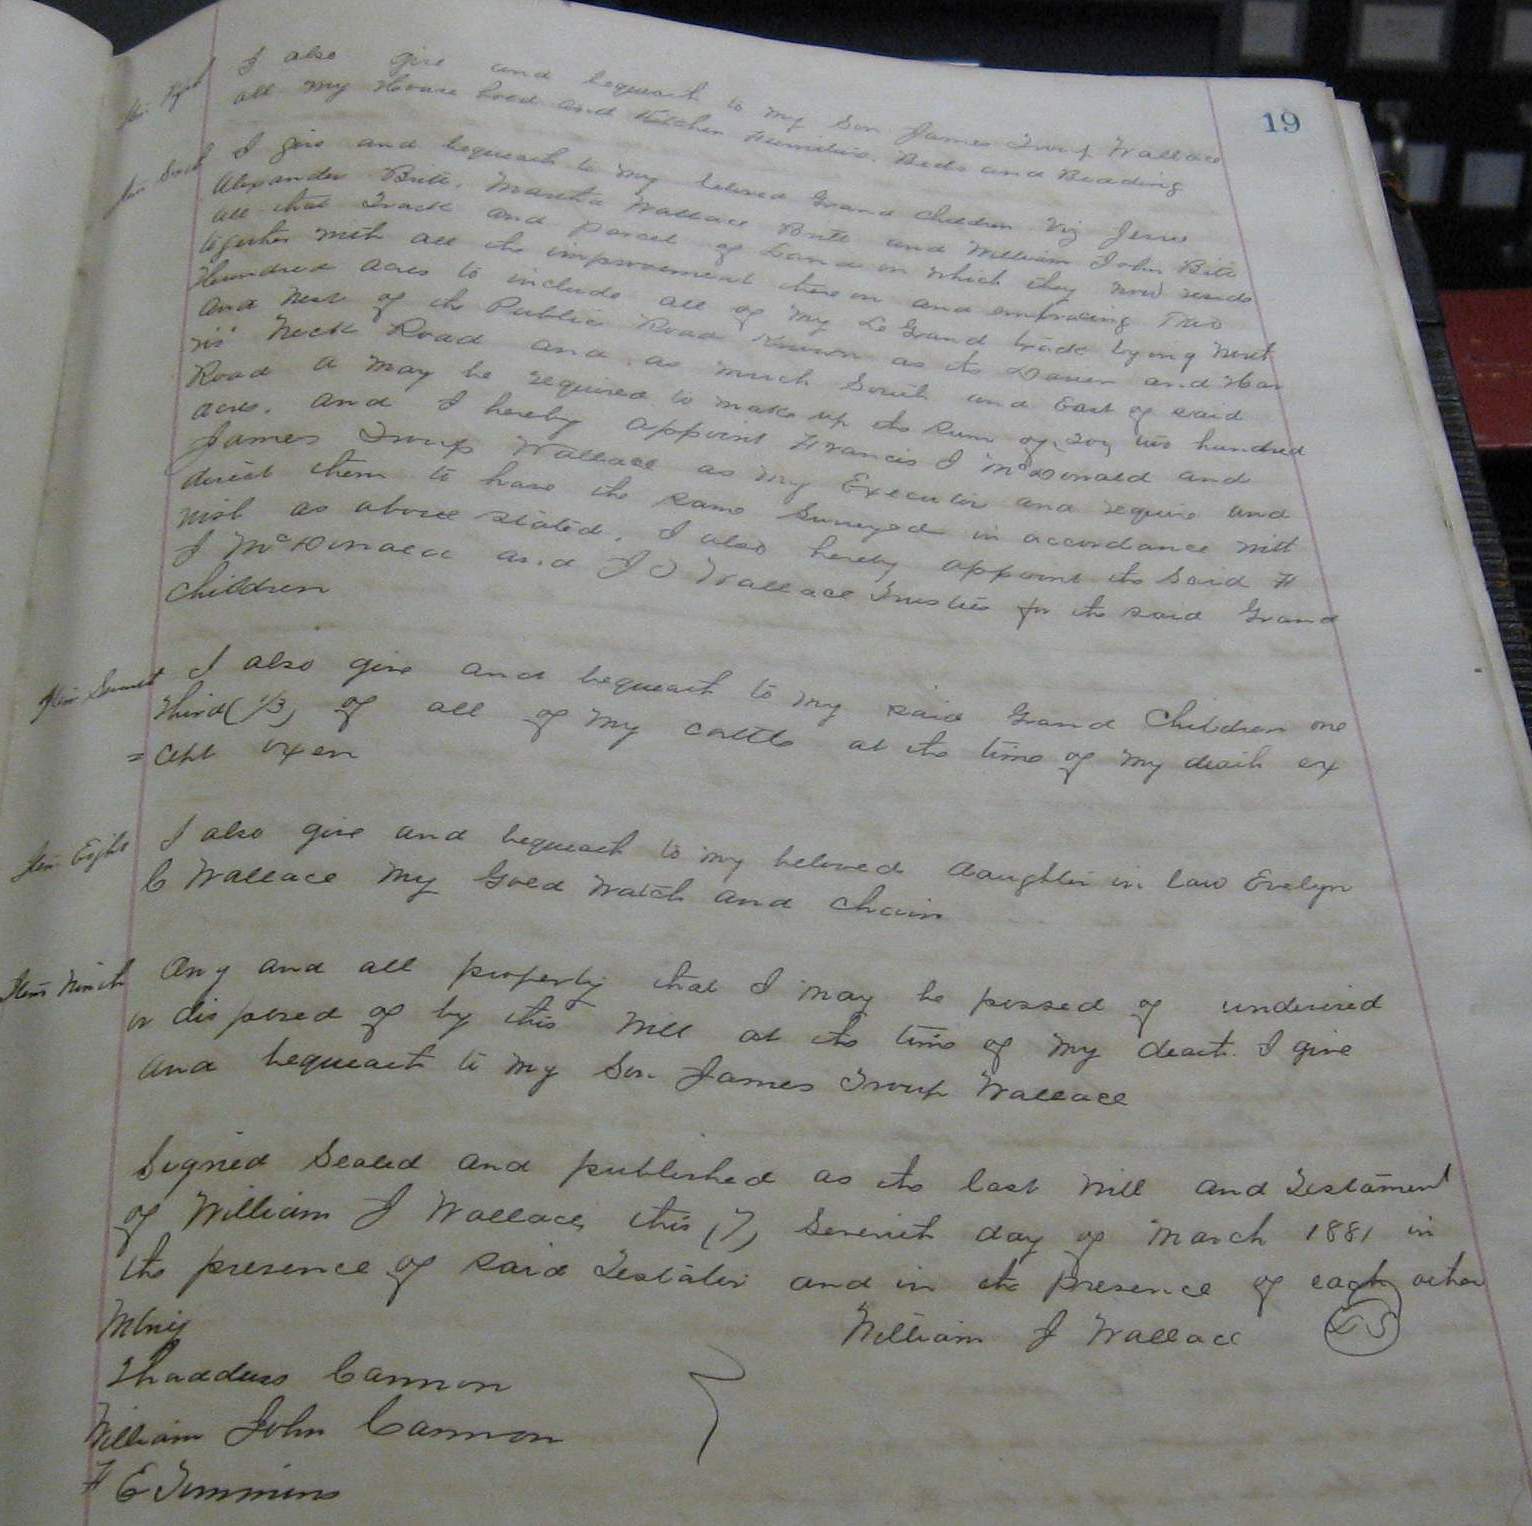 19
I also give and bequeath to my Son James Troup Wallace
all my House hold and Kitchen Furniture, Beds and Beading
I give and bequeath to my beloved Grand Children Viz Jesse
Alexander Britt, Martha Wallace Britt and William John Britt
all that Track and parcel of Land on which they now reside
together with all the improvement thereon and embracing Two
Hundred acres to include all of my Le Grand track lying North
and West of the Public Road known as the and
Neck Road and as much South and East of said
Road a may be required to make up the sum of two hundred
acres. and I hereby appoint Francis J McDonald and
James Troup Wallace as my Executor and require and
direct them to have the same Surveyed in accordance with
wish as above stated. I also hereby appoint the said F
J McDonald and J T Wallace Trustees for the said Grand
Children
Item Seventh I also give and bequeath to my said Grand Children one
third (1/3) of all of my cattle at the time of my death ex
=cept oxen
Item Eight I also give and bequeath to my beloved daughter in law Evelyn
C Wallace my Gold Watch and Chain
Item Ninth Any and all property that I may be possed of undivised
or disposed of by this Will at the time of my death. I give
and bequeath to my Son James Troup Wallace
Signed Sealed and published as the last Will and Testament
of William J Wallace this (7) Seventh day of March 1881 in
the presence of said Testator and in the presence of each other
William J Wallace LS
Thaddeus Cannon
William John Cannon
F E Timmins